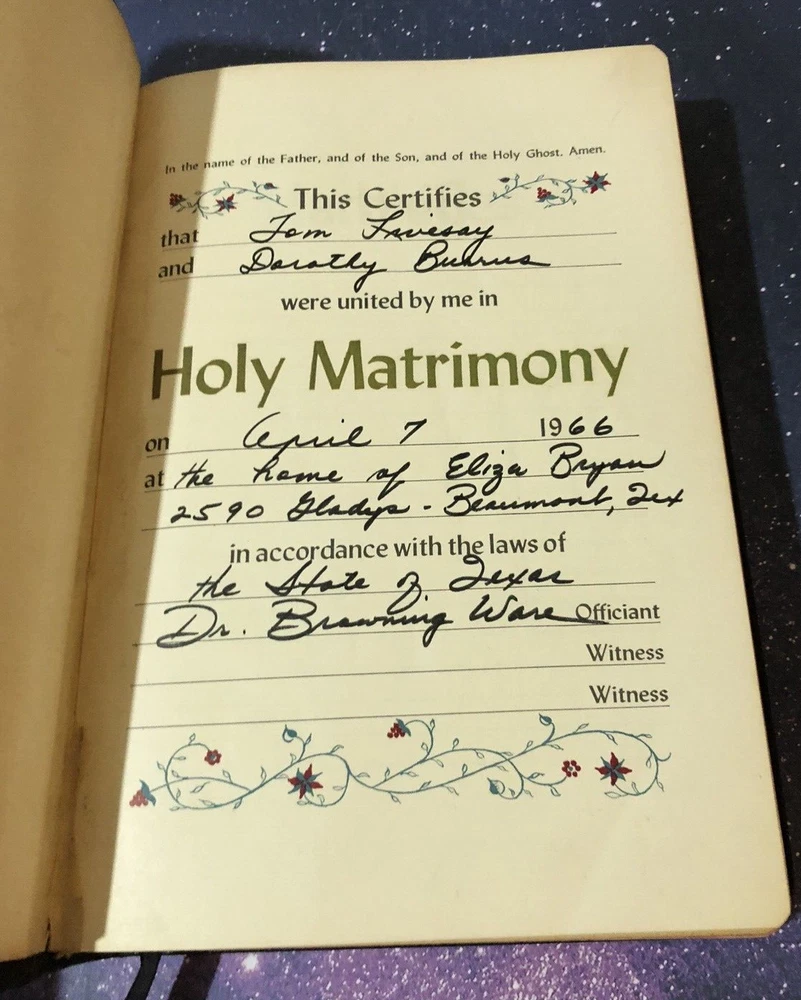 In the name of the Father, and of the Son, and of the Holy Ghost. Amen.
This Certifies
that Tom Livesay
and Dorothy Burrus
were united by me in
Holy Matrimony
on April 7 1966
at the home of Eliza Bryan
2590 Gladys - Beaumont, Tex
in accordance with the laws of
the State of Texas
Dr. Browning Ware Officiant
Witness
Witness